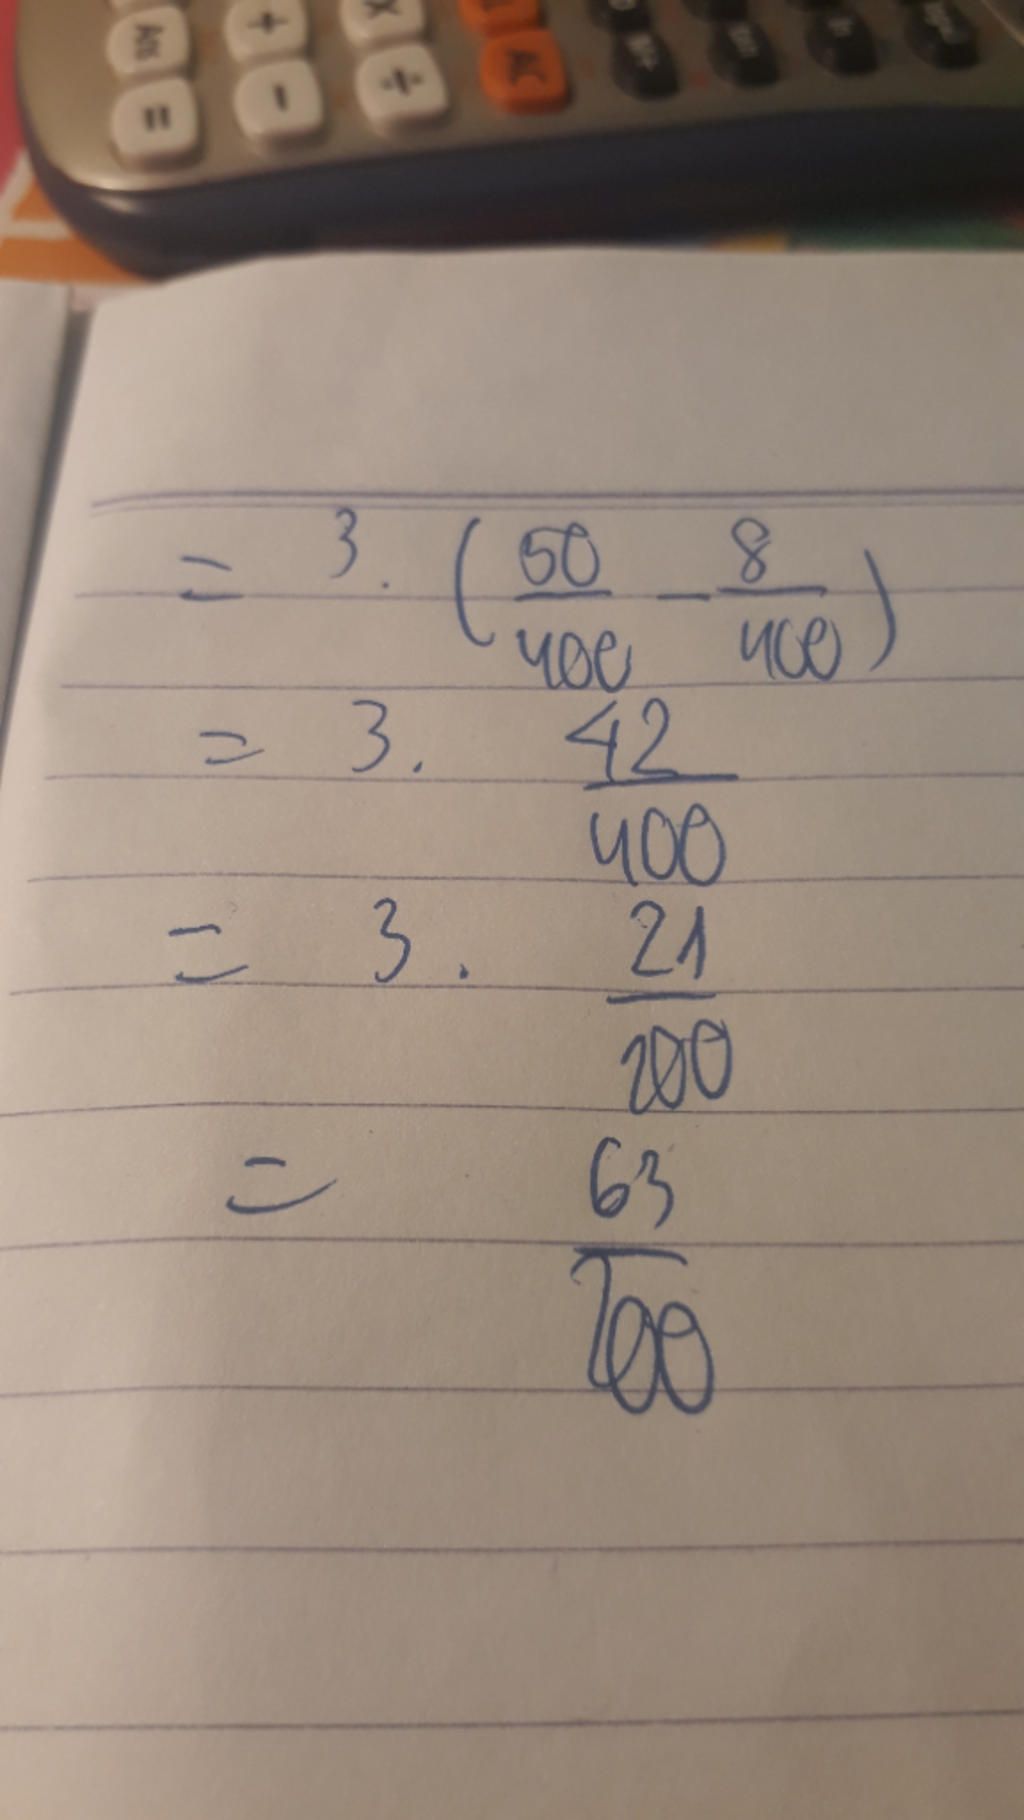 Ans + × AC
= - ÷
= 3. (50/400 - 8/400)
= 3. 42/400
= 3. 21/200
= 63/200